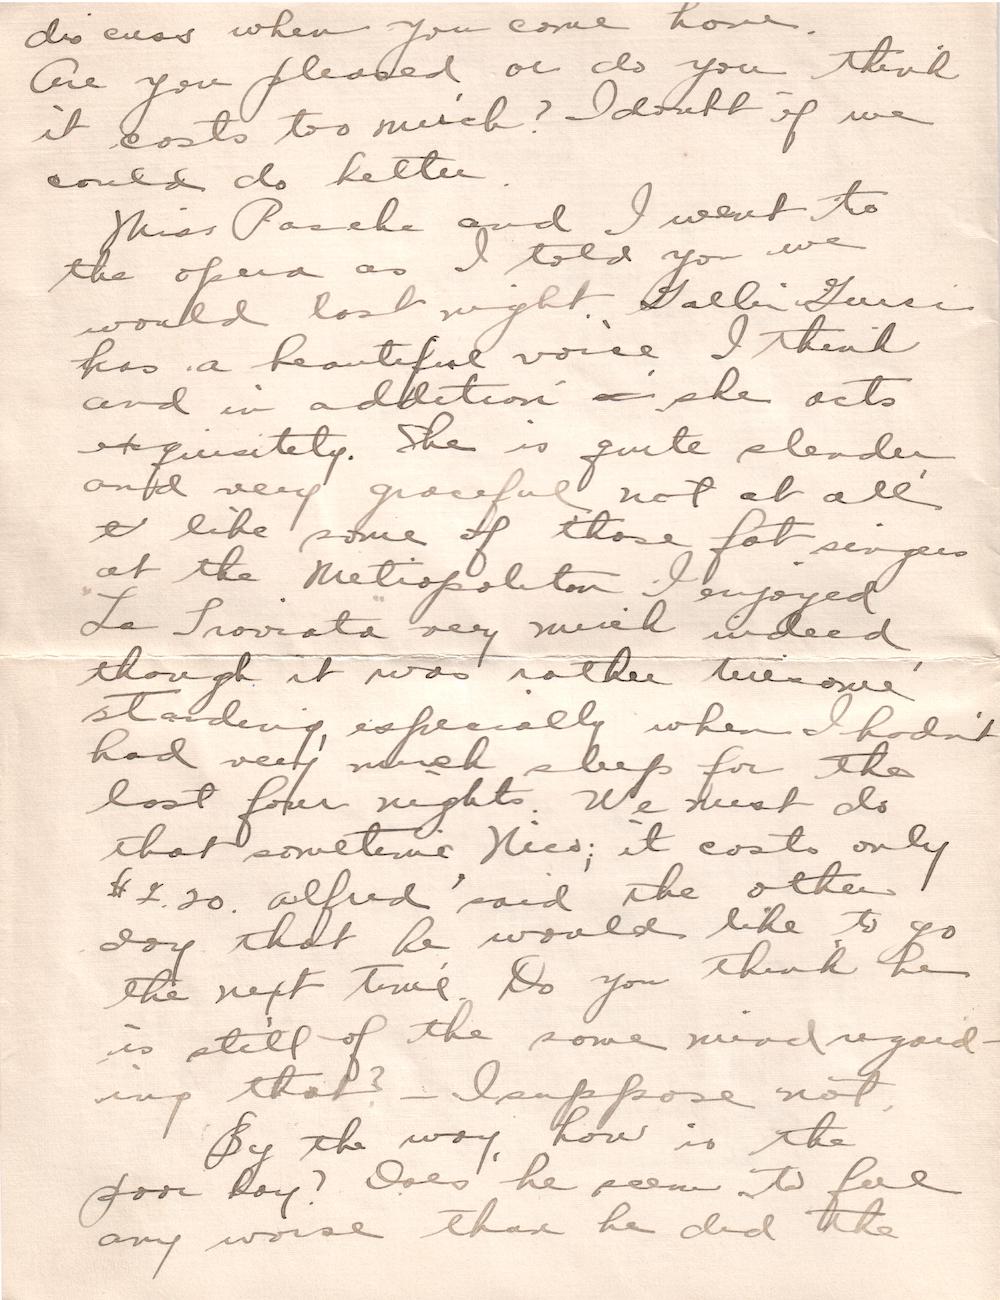 discuss when you come home.
Are you pleased or do you think
it costs too much? I doubt if we
could do better.
Miss Pasche and I went to
the opera as I told you we
would last night. Galli Gurci
has a beautiful voice I think
and in addition she acts
exquisitely. She is quite slender
and very graceful not at all
like some of those fat singers
at the Metropolitan. I enjoyed
"La Traviata" very much indeed
though it was rather tiresome
standing, especially when I hadn't
had very much sleep for the
last four nights. We must do
that sometime Nico; it costs only
$2.20. Alfred said the other
day that he would like to go
the next time. Do you think he
is still of the same mind regard-
ing that? – I suppose not.
By the way, how is the
poor boy? Does he seem to feel
any worse than he did the